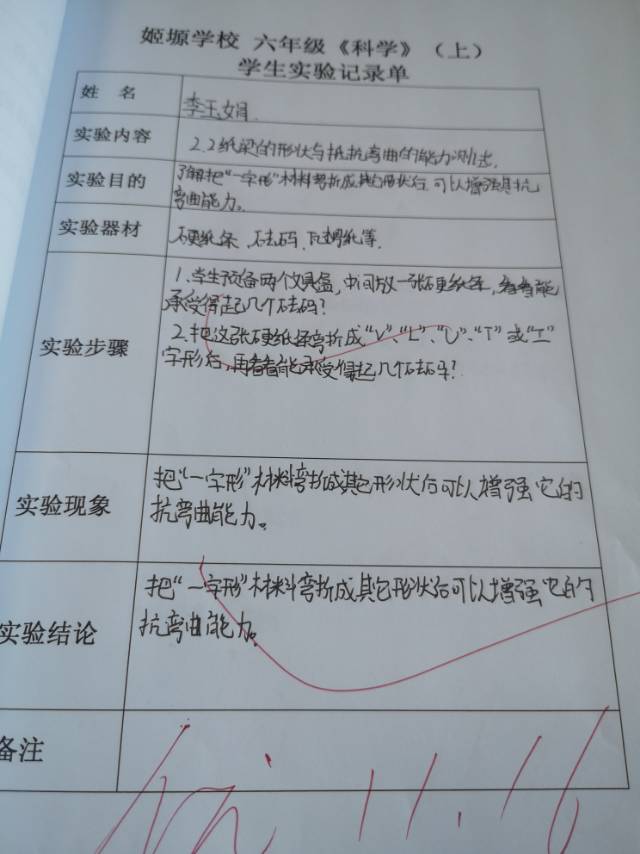 姬塬学校 六年级《科学》（上）
学生实验记录单
姓 名 李玉娟
实验内容 2.2纸梁的形状与抵抗弯曲的能力测试.
实验目的 了解把“一字形”材料弯折成其它形状后可以增强其抗
弯曲能力。
实验器材 硬纸条、砝码、瓦楞纸等.
实验步骤
1.学生预备两个文具盒,中间放一张硬纸条,看看能
承受得起几个砝码?
2.把这张硬纸条弯折成“V”、“L”、“U”、“T”或“工”
字形后,再看看能承受得起几个砝码?
实验现象
把“一字形”材料弯折成其它形状后可以增强它的
抗弯曲能力。
实验结论
把“一字形”材料弯折成其它形状后可以增强它的
抗弯曲能力。
备注
11.16